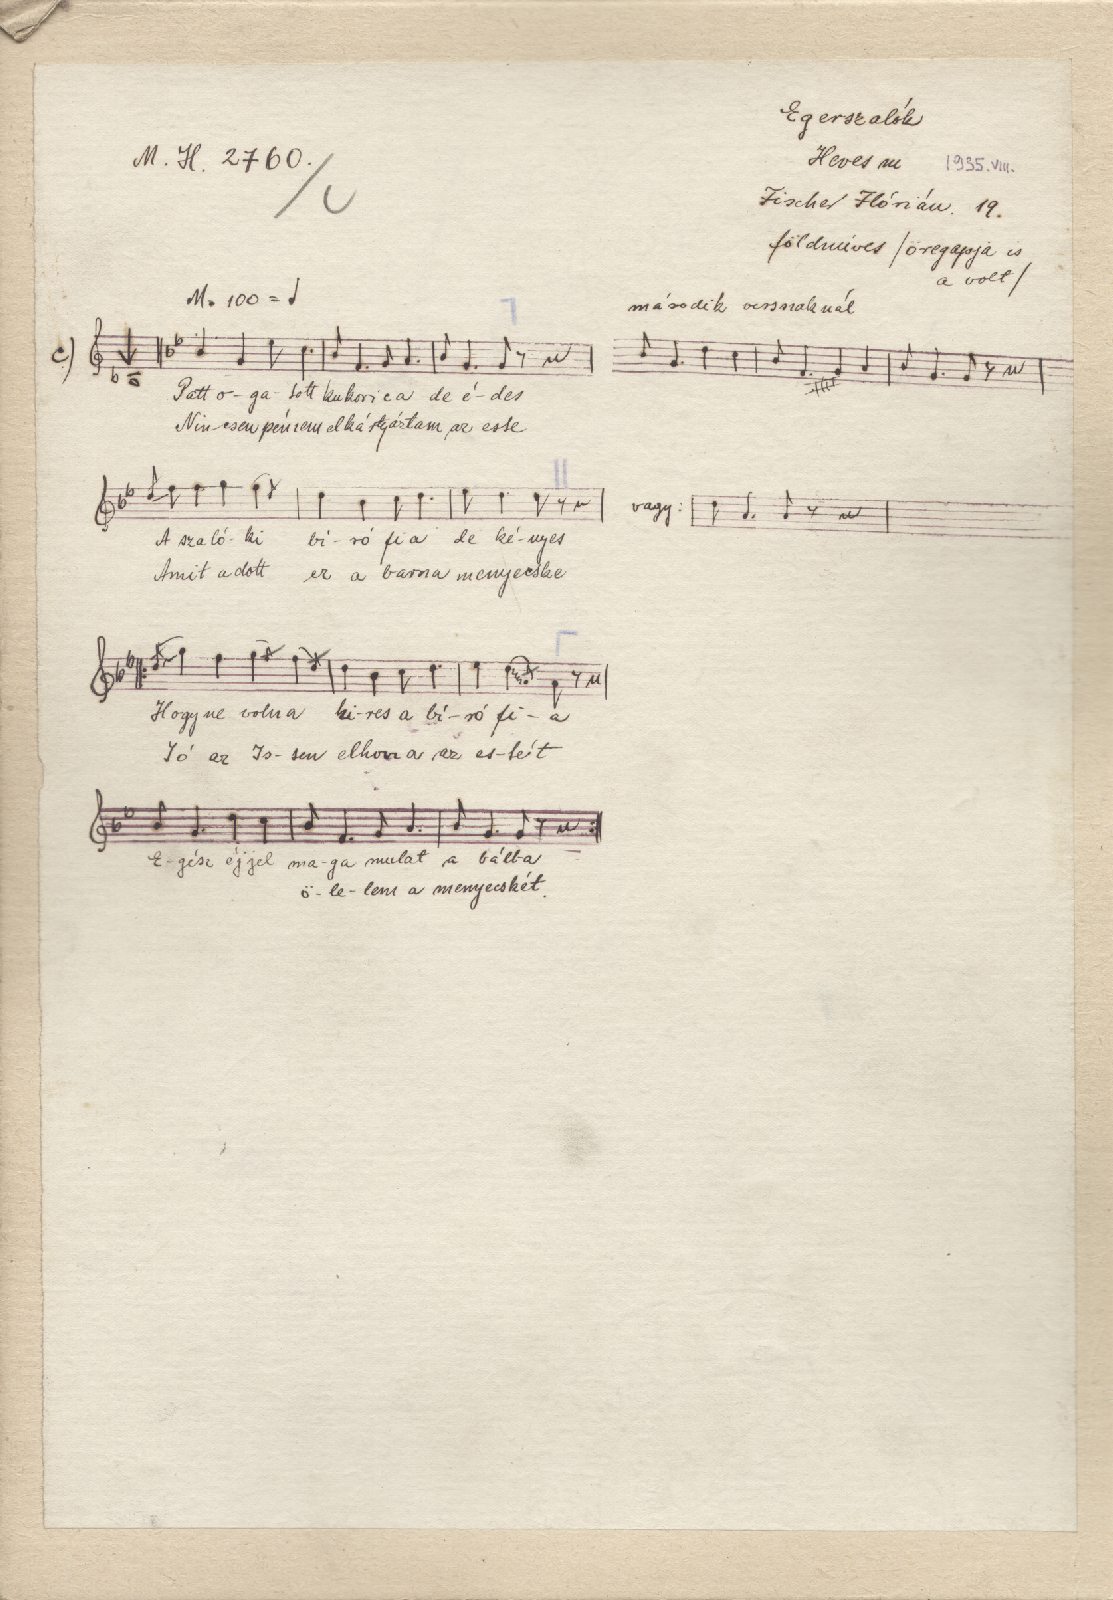 Egerszalók
M. H. 2760.
Heves m 1935.VIII.
Fischer Flórián. 19.
földmíves /öregapja is
a volt/
M. 100 =
második versszaknál
c)
Patt o-ga-tott kukorica de é-des
Nin-csen pénzem elkártyáztam az este
vagy:
A szaló-ki bí-ró fia de ké-nyes
Amit adott ez a barna menyecske
Hogy ne volna ki-res a bí-ró fi-a
Jó az Is-ten elhozza az es-tét
E-gész éjjel ma-ga mulat a bálba
ö-le-lem a menyecskét.